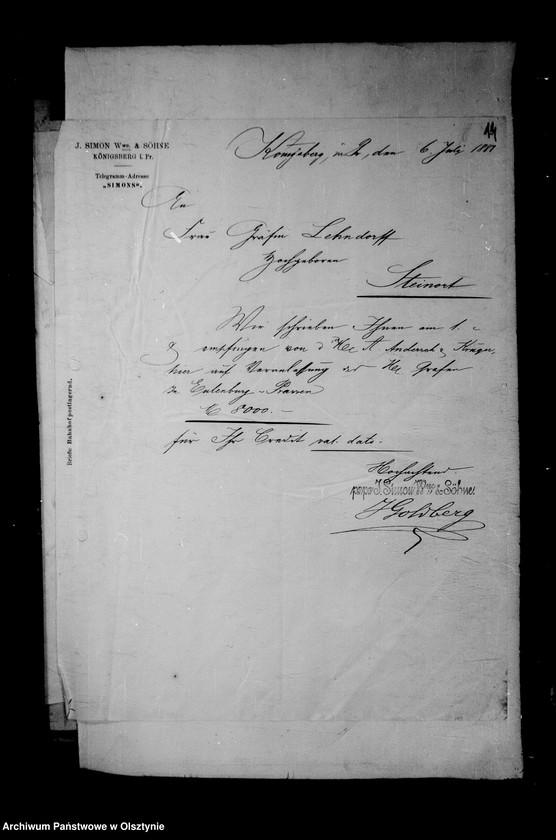 14
J. SIMON Wwe. & SÖHNE
KÖNIGSBERG i. Pr.
Telegramm-Adresse
„SIMONS“.
Königsberg, i. Pr., den 6 Juli 1881
An
Frau Gräfin Lehndorff
Hochgeboren
Steinort
Wir schrieben Ihnen am 1. c
& empfingen von d Hr. A Andersch & Krüger,
hier auf Veranlassung des Hr. Grafen
zu Eulenburg - Prassen
8000.-
für Ihr Credit val. dato.-
Hochachtend
ppa J. Simon Wwe & Söhne
Goldberg
Briefe Bahnhofpostlagernd.
Archiwum Państwowe w Olsztynie